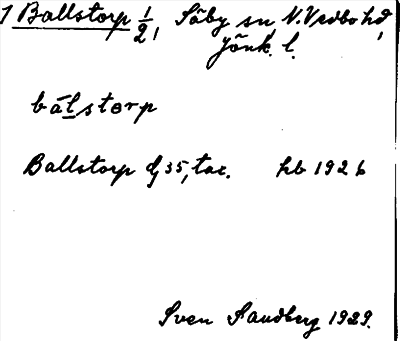 1 Ballstorp 1/2, Säby sn N. Vedbo hd,
Jönk. l.
bålstorp
Ballstorp dy 35, tax. hb 1926
Sven Sandberg 1929.